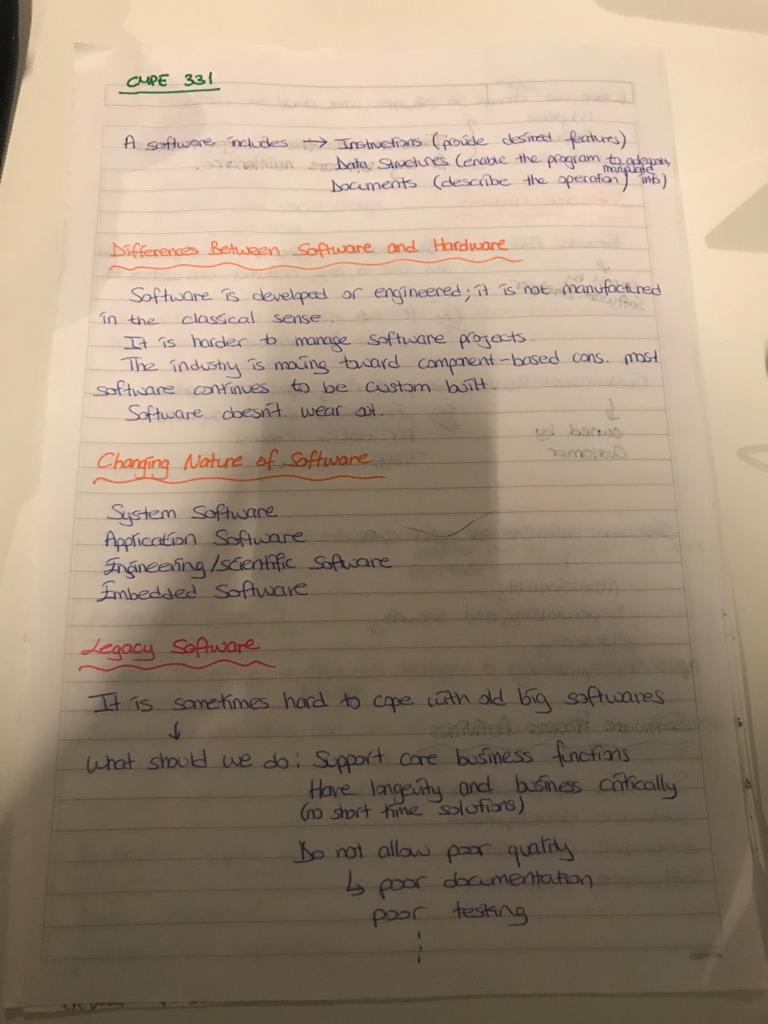 CMPE 331
A software includes → Instructions (provide desired features)
Data Structures (enable the program to adequately manipulate info)
Documents (describe the operation)
Differences Between Software and Hardware
Software is developed or engineered; it is not manufactured
in the classical sense.
It is harder to manage software projects.
The industry is moving toward component-based cons. most
software continues to be custom built.
Software doesn't wear out.
Changing Nature of Software
System Software
Application Software
Engineering/scientific Software
Embedded Software
Legacy Software
It is sometimes hard to cope with old big softwares
↓
What should we do: Support core business functions
Have longevity and business critically
(no short time solutions)
Do not allow poor quality
↳ poor documentation
poor testing